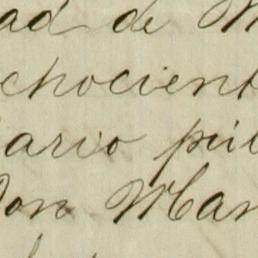 ad de M
chocient
ario púb
Don Man